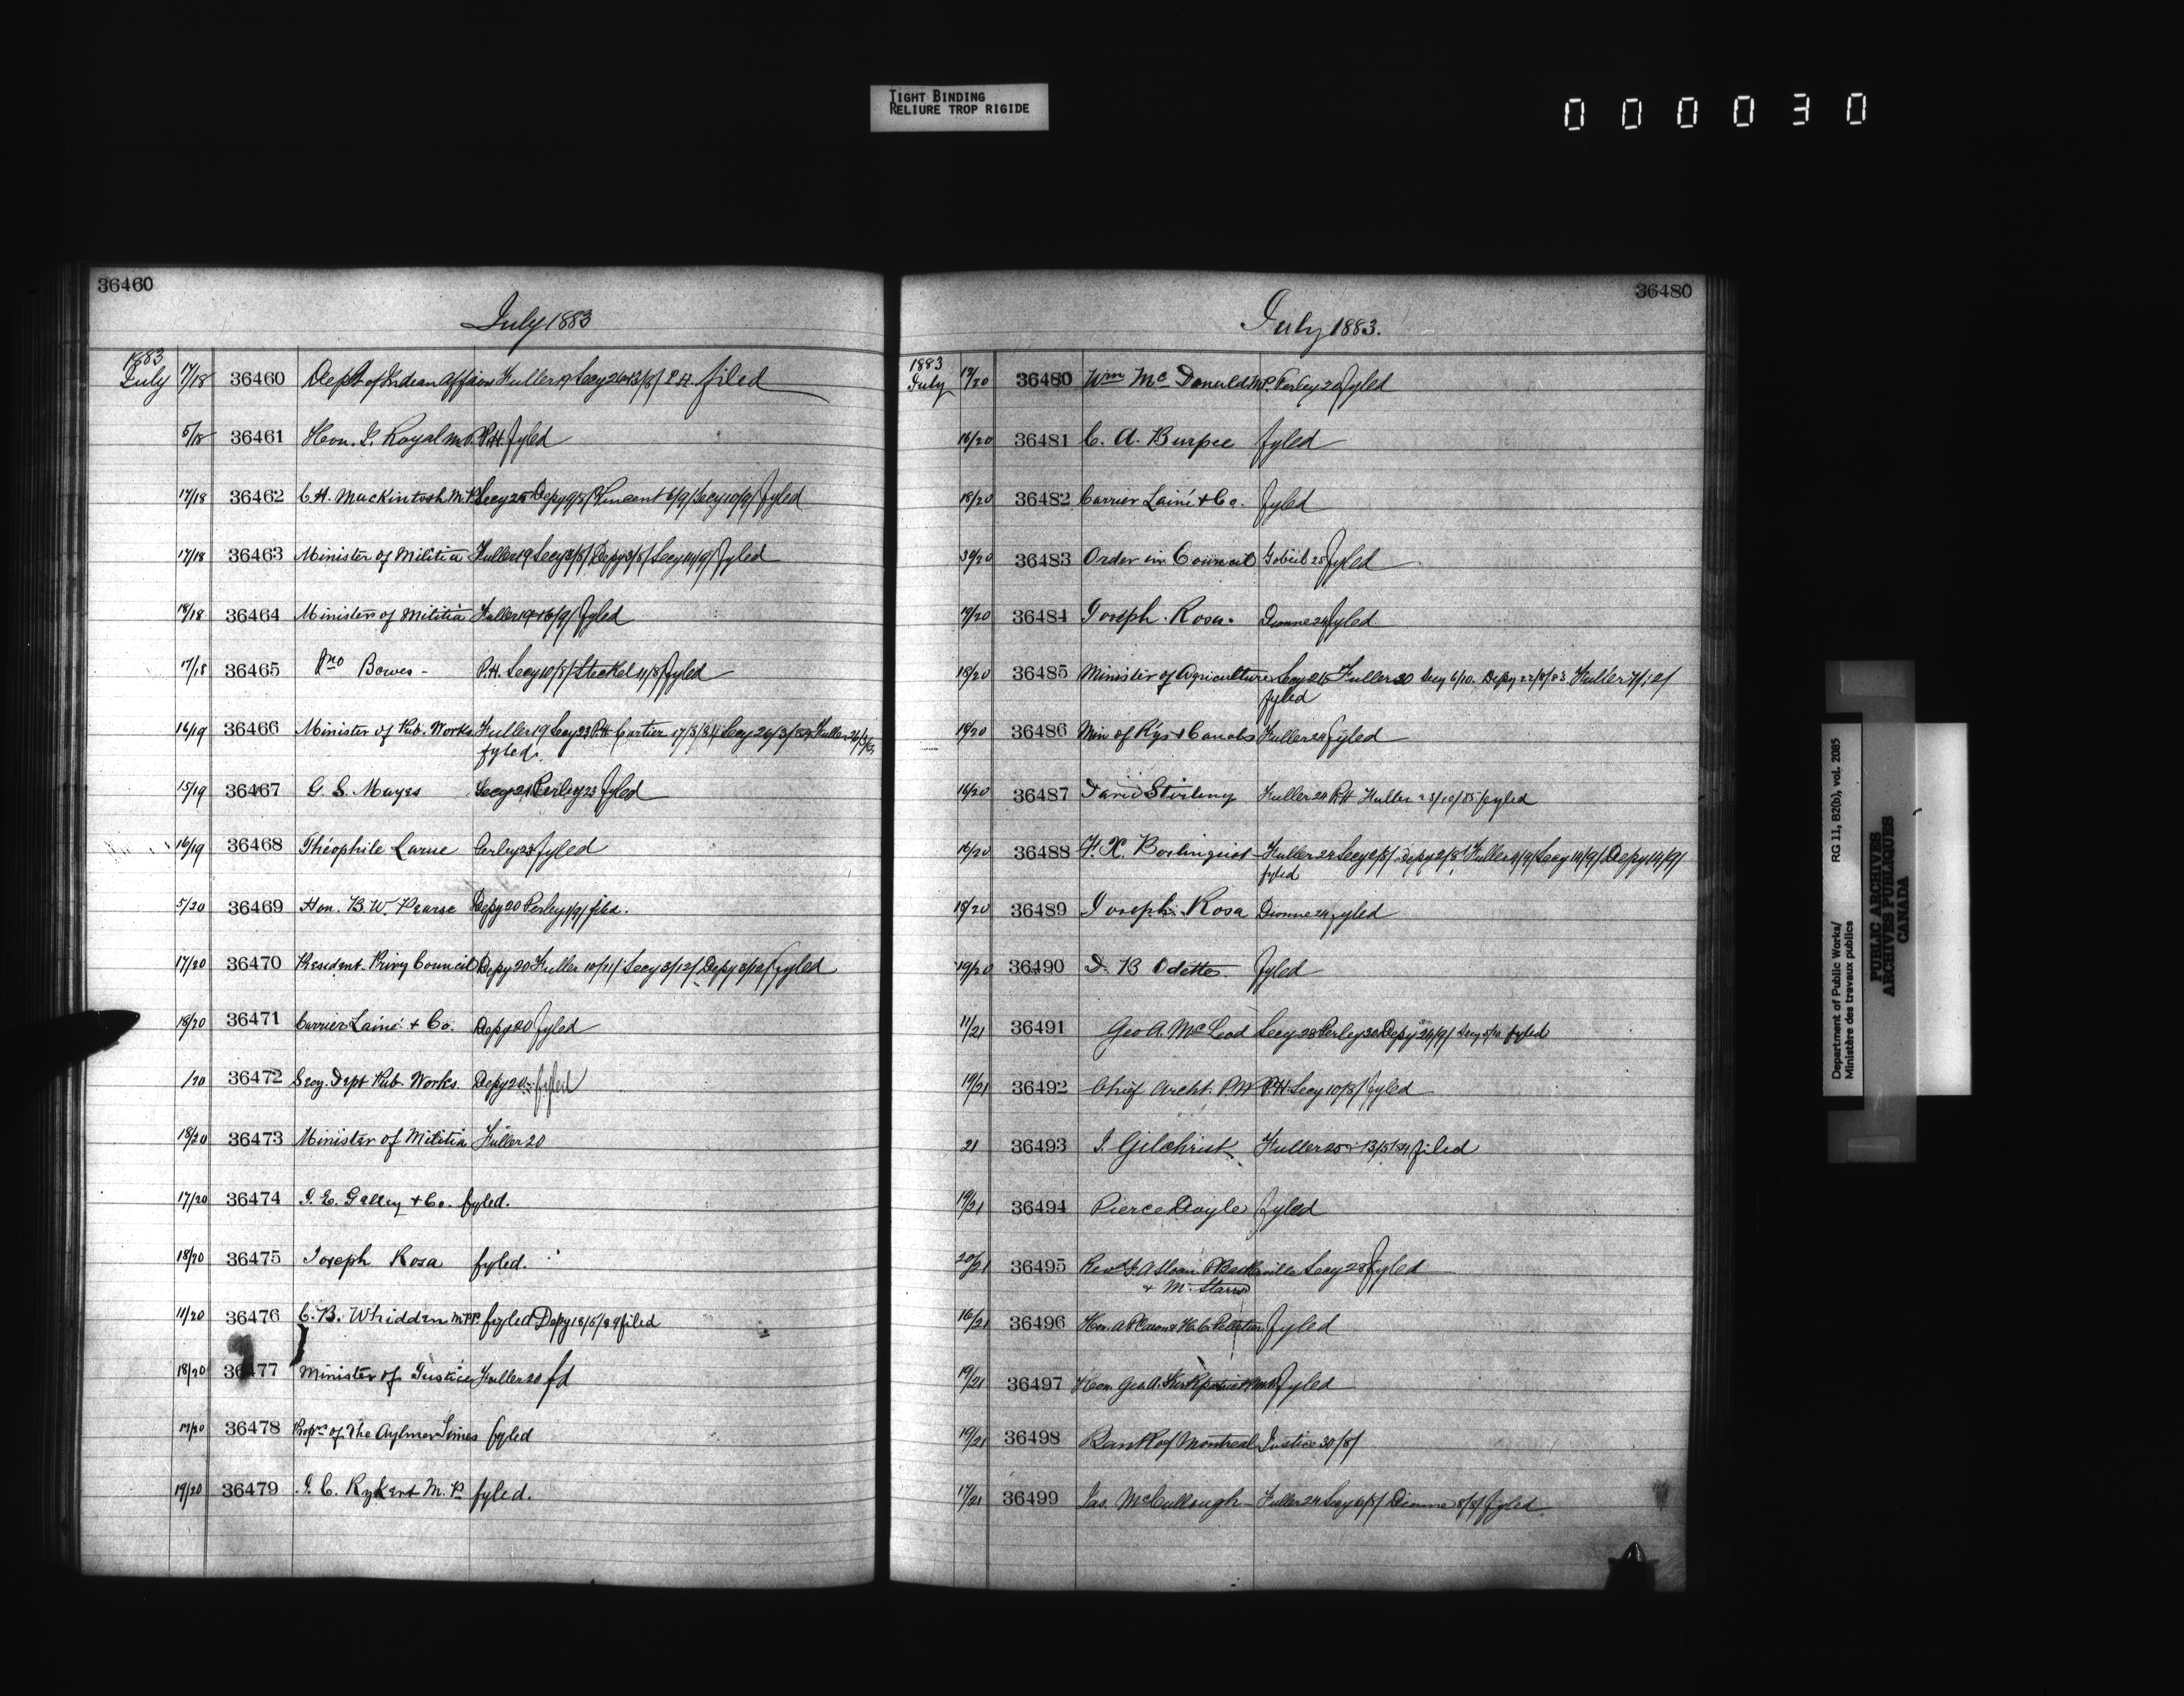 TIGHT BINDING
RELIURE TROP RIGIDE
000030
36460
July 1883
1883
July 17/18 36460 Dept of Indian Affairs Fuller 19 Secy 26 P.H. filed
5/18 36461 Hon. J. Royal M.P. P.H. fyled
17/18 36462 C.H. Mackintosh M.P. Secy 25 Depy 9/8/ Vincent 6/9/ Secy 10/9/ fyled
17/18 36463 Minister of Militia Fuller 19 Secy 3/8/ Depy 3/8/ Secy 14/9/ fyled
18/18 36464 Minister of Militia Fuller 19 fyled
17/18 36465 Jno Bowes - P.H. Secy 10/8/ Steckel 11/8/ fyled
16/19 36466 Minister of Pub. Works Fuller 19 Secy 23 P.H. Cartier 17/3/84 Secy 26/3/84 Fuller
fyled.
15/19 36467 G. S. Mayes Secy 21 Perley 23 fyled
16/19 36468 Théophile Larue Perley 23 fyled
5/20 36469 Hon. B. W. Pearse Depy 20 Perley filed.
17/20 36470 President Privy Council Depy 20 Fuller 10/11/ Secy 3/12/ Depy 3/12/ fyled
18/20 36471 Carrier Lainé + Co. Depy 20 fyled
/20 36472 Secy. Dept Pub Works Depy 20 fyled
18/20 36473 Minister of Militia Fuller 20
17/20 36474 J. E. Galley + Co. fyled.
18/20 36475 Joseph Rosa fyled.
11/20 36476 C. B. Whidden M.P.P. fyled Depy 18/5/89 filed
18/20 36477 Minister of Justice Fuller 20 fd
17/20 36478 Proprs of The Aylmer Times fyled
19/20 36479 J. C. Rykert M. P. fyled.
36480
July 1883.
1883
July 17/20 36480 Wm McDonald M.P. Perley 20 fyled
16/20 36481 C. A. Burpee fyled
18/20 36482 Carrier Lainé + Co. fyled
30/20 36483 Order in Council Gobeil 25 fyled
19/20 36484 Joseph Rosa. Dionne 24 fyled
18/20 36485 Minister of Agriculture Secy 21 Fuller 30 Secy 6/10. Depy 22/8/83 Fuller
fyled
18/20 36486 Min of Rys + Canals Fuller 24 fyled
16/20 36487 David Stirling Fuller 24 P.H. Fuller fyled
16/20 36488 F. X. Berlinguet Fuller 24 Secy 2/8/ Depy 2/8/ Fuller 4/9/ Secy 14/9/ Depy 14/9/
fyled
18/20 36489 Joseph Rosa Dionne 24 fyled
19/20 36490 D. B Odette fyled
11/21 36491 Geo A. McLeod Secy 28 Perley 30 Depy 26/9/ Secy 5/10 fyled
19/21 36492 Chief Archt. P.W P.H. Secy 10/8/ fyled
21 36493 J. Gilchrist Fuller 25 13/5/84 filed
19/21 36494 Pierce Doyle fyled
20/21 36495 Revd J. A Sloan P Baskerville Secy 28 fyled
+ M. Starrs
16/21 36496 Hon. A P Caron + H. C. Pelletier fyled
19/21 36497 Hon. Geo. A. Kirkpatrick M.P. fyled
19/21 36498 Bank of Montreal Justice 30/8/
17/21 36499 Jas. McCullough Fuller 24 Secy 6/8/ Dionne 8/8/ fyled.
Department of Public Works/ RG 11, B2(b), vol. 2085
Ministère des travaux publics
PUBLIC ARCHIVES
ARCHIVES PUBLIQUES
CANADA